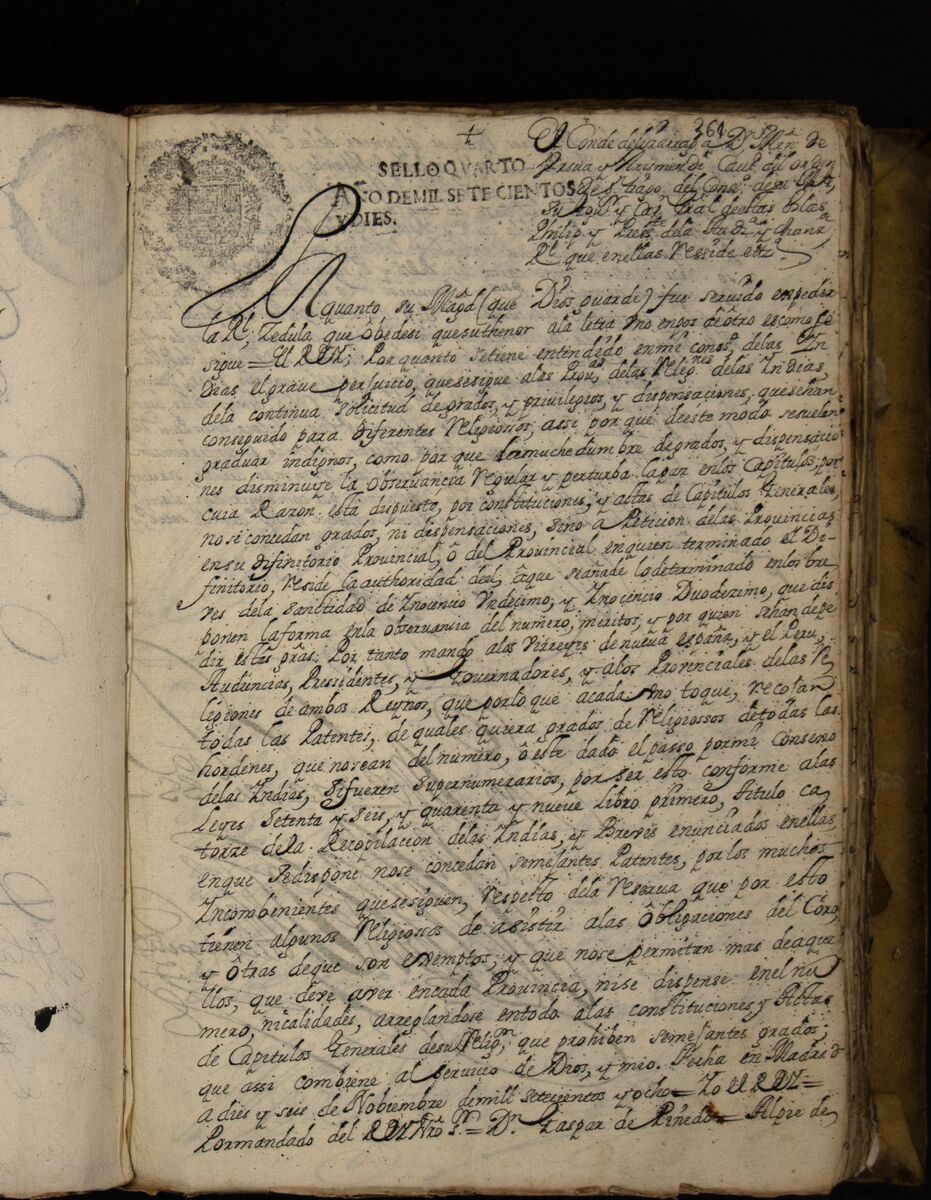 361
SELLO QVARTO
AÑO DE MIL SETECIENTOS
Y DIES.
El Conde de D.ⁿ Mrn. de
Vrsua y Arismendi Caul. del orden
de S.tiago, del Cons.º de su Mag.
su Gou.ᵒʳ y Cap.ⁿ Gral. de estas Islas
Philip.ˢ y Press.ᵗᵉ dela Aud.ª y Chanz.ª
R.ˡ que en ellas resside etz.ª
quanto su Mag.ᵈ (que Dios guarde) fue seruido expedir
la R.ˡ Zedula que obedesi que su thenor a la letra vno en pos de ôtro es como se
sigue = El REY; Por quanto setiene entendido en mi cons.º delas In
dias el graue perjuicio, que sesigue alas Prou.ᵃˢ delas Relig.ⁿᵉˢ delas Indias,
dela continua solicitud de grados, y priuilegios, y dispensaciones, que señan
conseguido para diferentes Religiossos, assi por que deeste modo sesuelan
graduar indignos, como por que la muchedumbre de grados, y dispensacio
nes disminuye la observancia regular y perturba la paz en los Capitulos, por
cuia Razon está dispuesto, por constituciones, y actas de Capitulos Generales,
no si concedan grados, ni dispensaciones, sino â Peticion delas Prouincias
en su Difinitorio Prouincial, ô del Prouincial en quien terminado el Di-
finitorio, reside la authoridad deel, âque seañade lo determinado en los bre
ves dela santtidad de Inocencio Vndecimo, y Inocincio Duodezimo, que dis
ponen la forma en la observancia del numero, meritos, y por quien sehan depe
dir estas grãs: Por tanto mando alos Virreyes de nueva españa, y el Peru,
Audiencias, Pressidentes, y Gouernadores, y âlos Prouinciales delas Re
ligiones de ambos Reynos, que por lo que acada vno toque, recojan
todas las Patentes, de quales quiera grados de Religiossos detodas las
hordenes, que nosean del numero, ô este dado el passo por mi Consexo
delas Indias, si fueren supernumerarios, por ser esto conforme alas
Leyes Setenta y seis, y quarenta y nueve libro primero, titulo ca
torze dela Recopilacion delas Indias, y Breves enunciados en ellas,
en que se dispone nose concedan semejantes Patentes, por los muchos
Incombenientes que sesiguen, respetto dela reserua que por esto
tienen algunos Religiossos de asistir alas Obligaciones del Coro,
y ôtras deque son exemptos, y que nose permitan mas de aque
llos, que deve aver encada Prouincia, nise dispense en el nu
mero, ni calidades, arreglandose en todo alas constituciones y Actas
de Capitulos Generales desu Relig.ⁿ, que prohiben semejantes grados;
que assi combiene al servicio de Dios, y mio. Fecha en Madrid
a dies y seis de Nobiembre de mill setecientos y ocho = Yo el REY =
Por mandado del REY Nrõ S.ʳ = D.ⁿ Gaspar de Pinedo = Al pie de